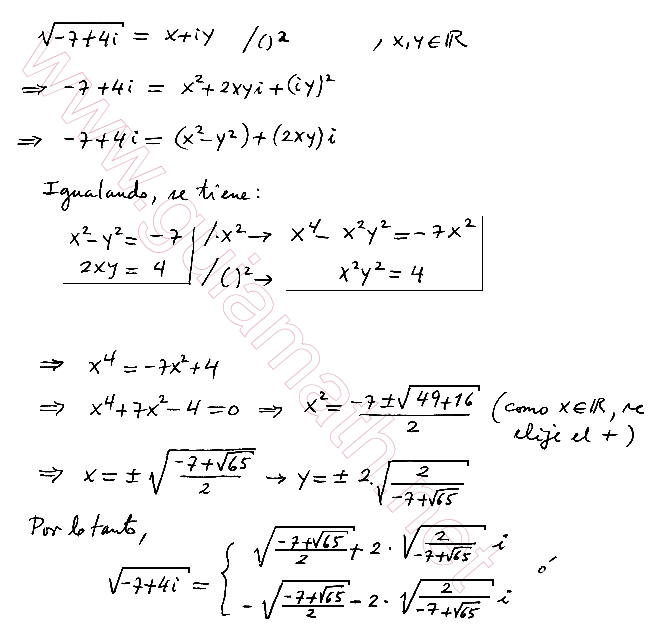 √(-7+4i) = x+iy /()² , x,y∈ℝ
⇒ -7+4i = x²+2xyi+(iy)²
⇒ -7+4i = (x²-y²)+(2xy)i
Igualando, se tiene:
x²-y² = -7 /·x² → x⁴- x²y² = -7x²
2xy = 4 /()² → x²y² = 4
⇒ x⁴ = -7x²+4
⇒ x⁴+7x²-4=0 ⇒ x² = (-7±√(49+16))/2 (como x∈ℝ, se
elije el +)
⇒ x = ± √((-7+√65)/2) → y = ± 2·√(2/(-7+√65))
Por lo tanto,
√(-7+4i) = { √((-7+√65)/2) + 2 · √(2/(-7+√65)) i ó
-√((-7+√65)/2) - 2 · √(2/(-7+√65)) i
www.guiamath.net